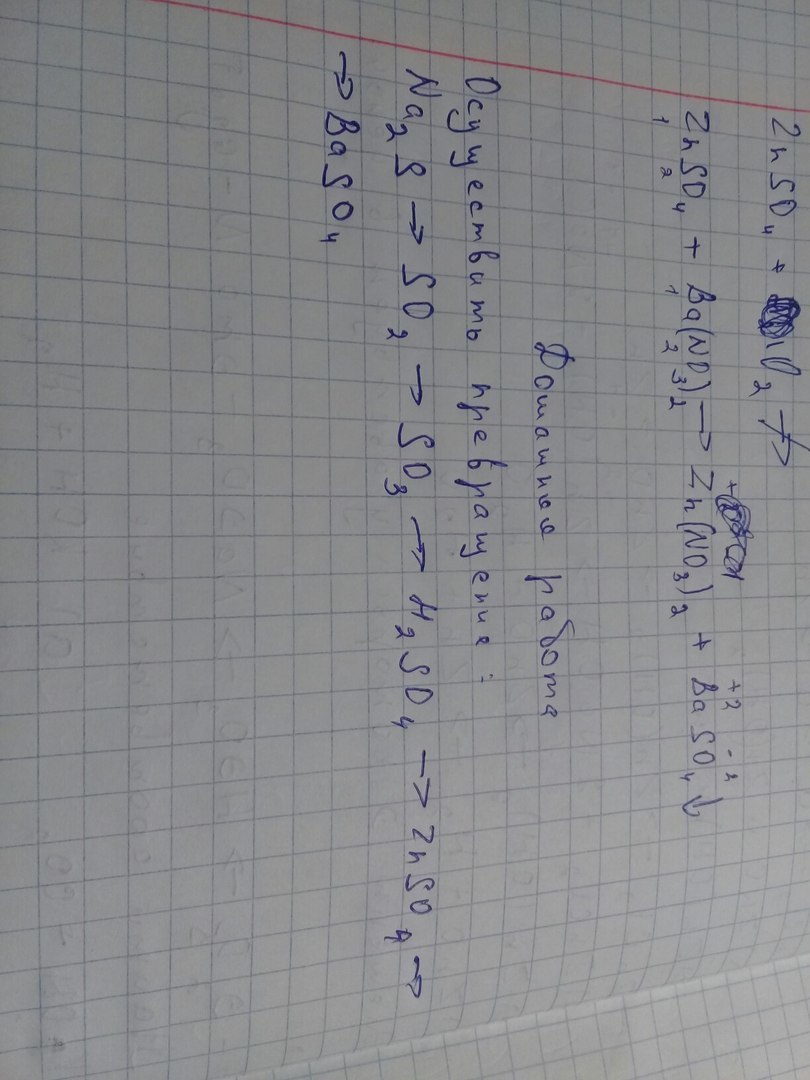 ZnSO₄ + O₂ ↛
ZnSO₄ + Ba(NO₃)₂ → Zn(NO₃)₂ + BaSO₄↓
Домашняя работа
Осуществить превращение:
Na₂S → SO₂ → SO₃ → H₂SO₄ → ZnSO₄ →
→ BaSO₄